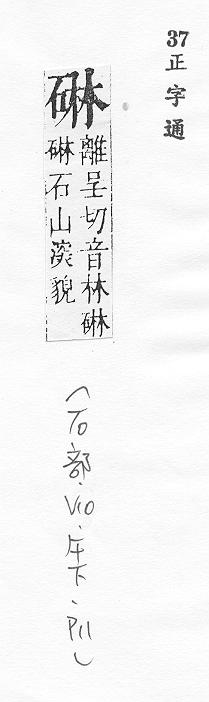 37
正字通
碄
離呈切音林碄
碄石山深貌
(石部.V10.午下.P11)